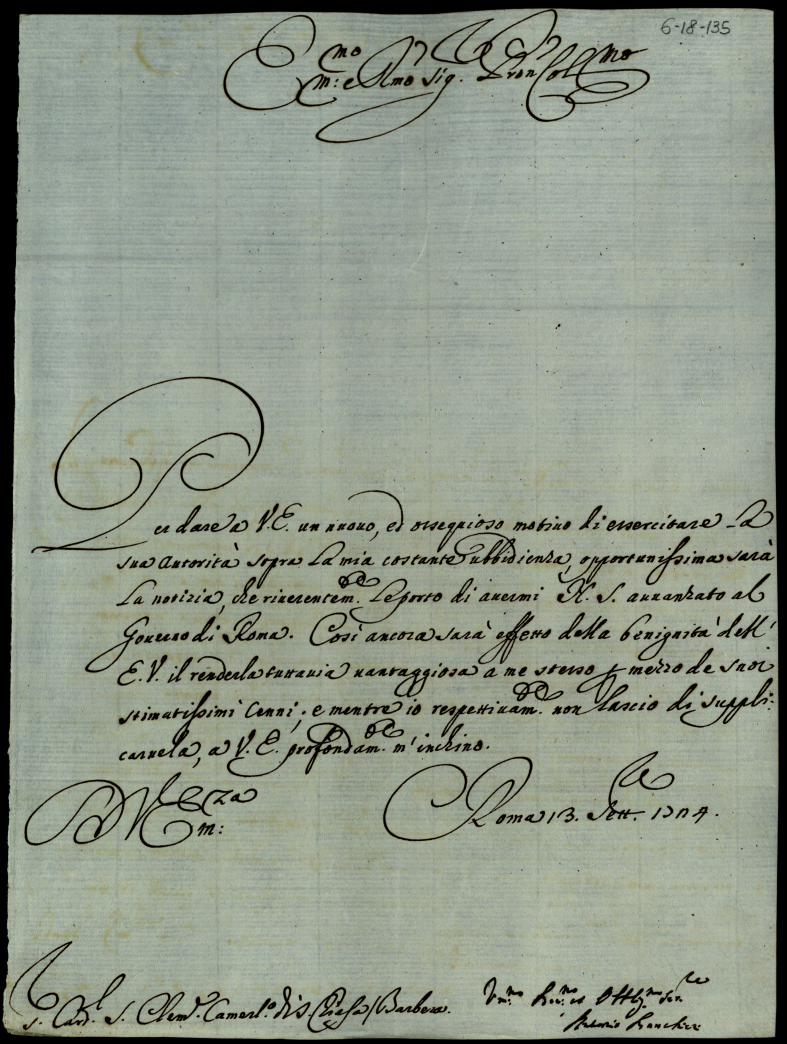 6-18-135
Emo
m: e Rmo Sig. Pron Col mo
Per dare a V.E. un nuovo, ed ossequioso motivo di essercitare la
sua autorità sopra la mia costante ubbidienza, opportunissima sarà
la notizia, che riverentem.te le porto di avermi N. S. avvanzato al
Governo di Roma. Così ancora sarà effetto della benignità dell'
E.V. il renderla tuttavia vantaggiosa a me stesso p mezzo de suoi
stimatissimi cenni; e mentre io respettivam.te non lascio di suppli:
carnela, a V.E. profondam.te m'inchino.
D V Eza
m:
Roma 13. Sett.re
S. Card.l S. Clem.e Camerl.o di S. Chiesa / Barbera.
Um.mo Dev.mo et Obblg.mo Ser.re
Antonio Banchier